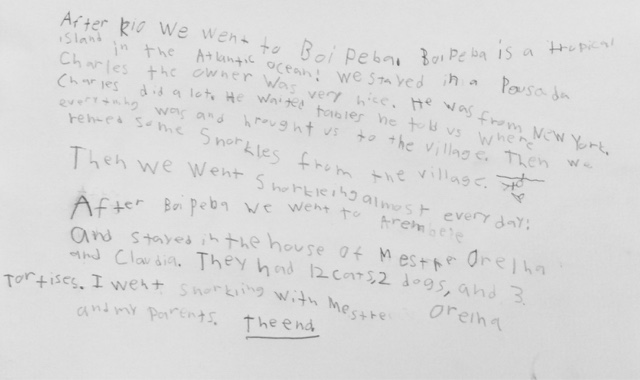 After Rio We Went to Boipeba. Boipeba is a tropical
island in the Atlantic ocean! We stayed in a Pousada
Charles the owner was very nice. He was from New York.
Charles did a lot. He waited tables he told us where
everything was and brought us to the village. Then we
rented some Snorkles from the village.
Then we went Snorkleing almost every day!
After Boipeba we went to Arembepe
and stayed in the house of Mestre Orelha
and Claudia. They had 12 cats, 2 dogs, and 3
Tortises. I went snorkling with Mestre Orelha
and my parents. The end